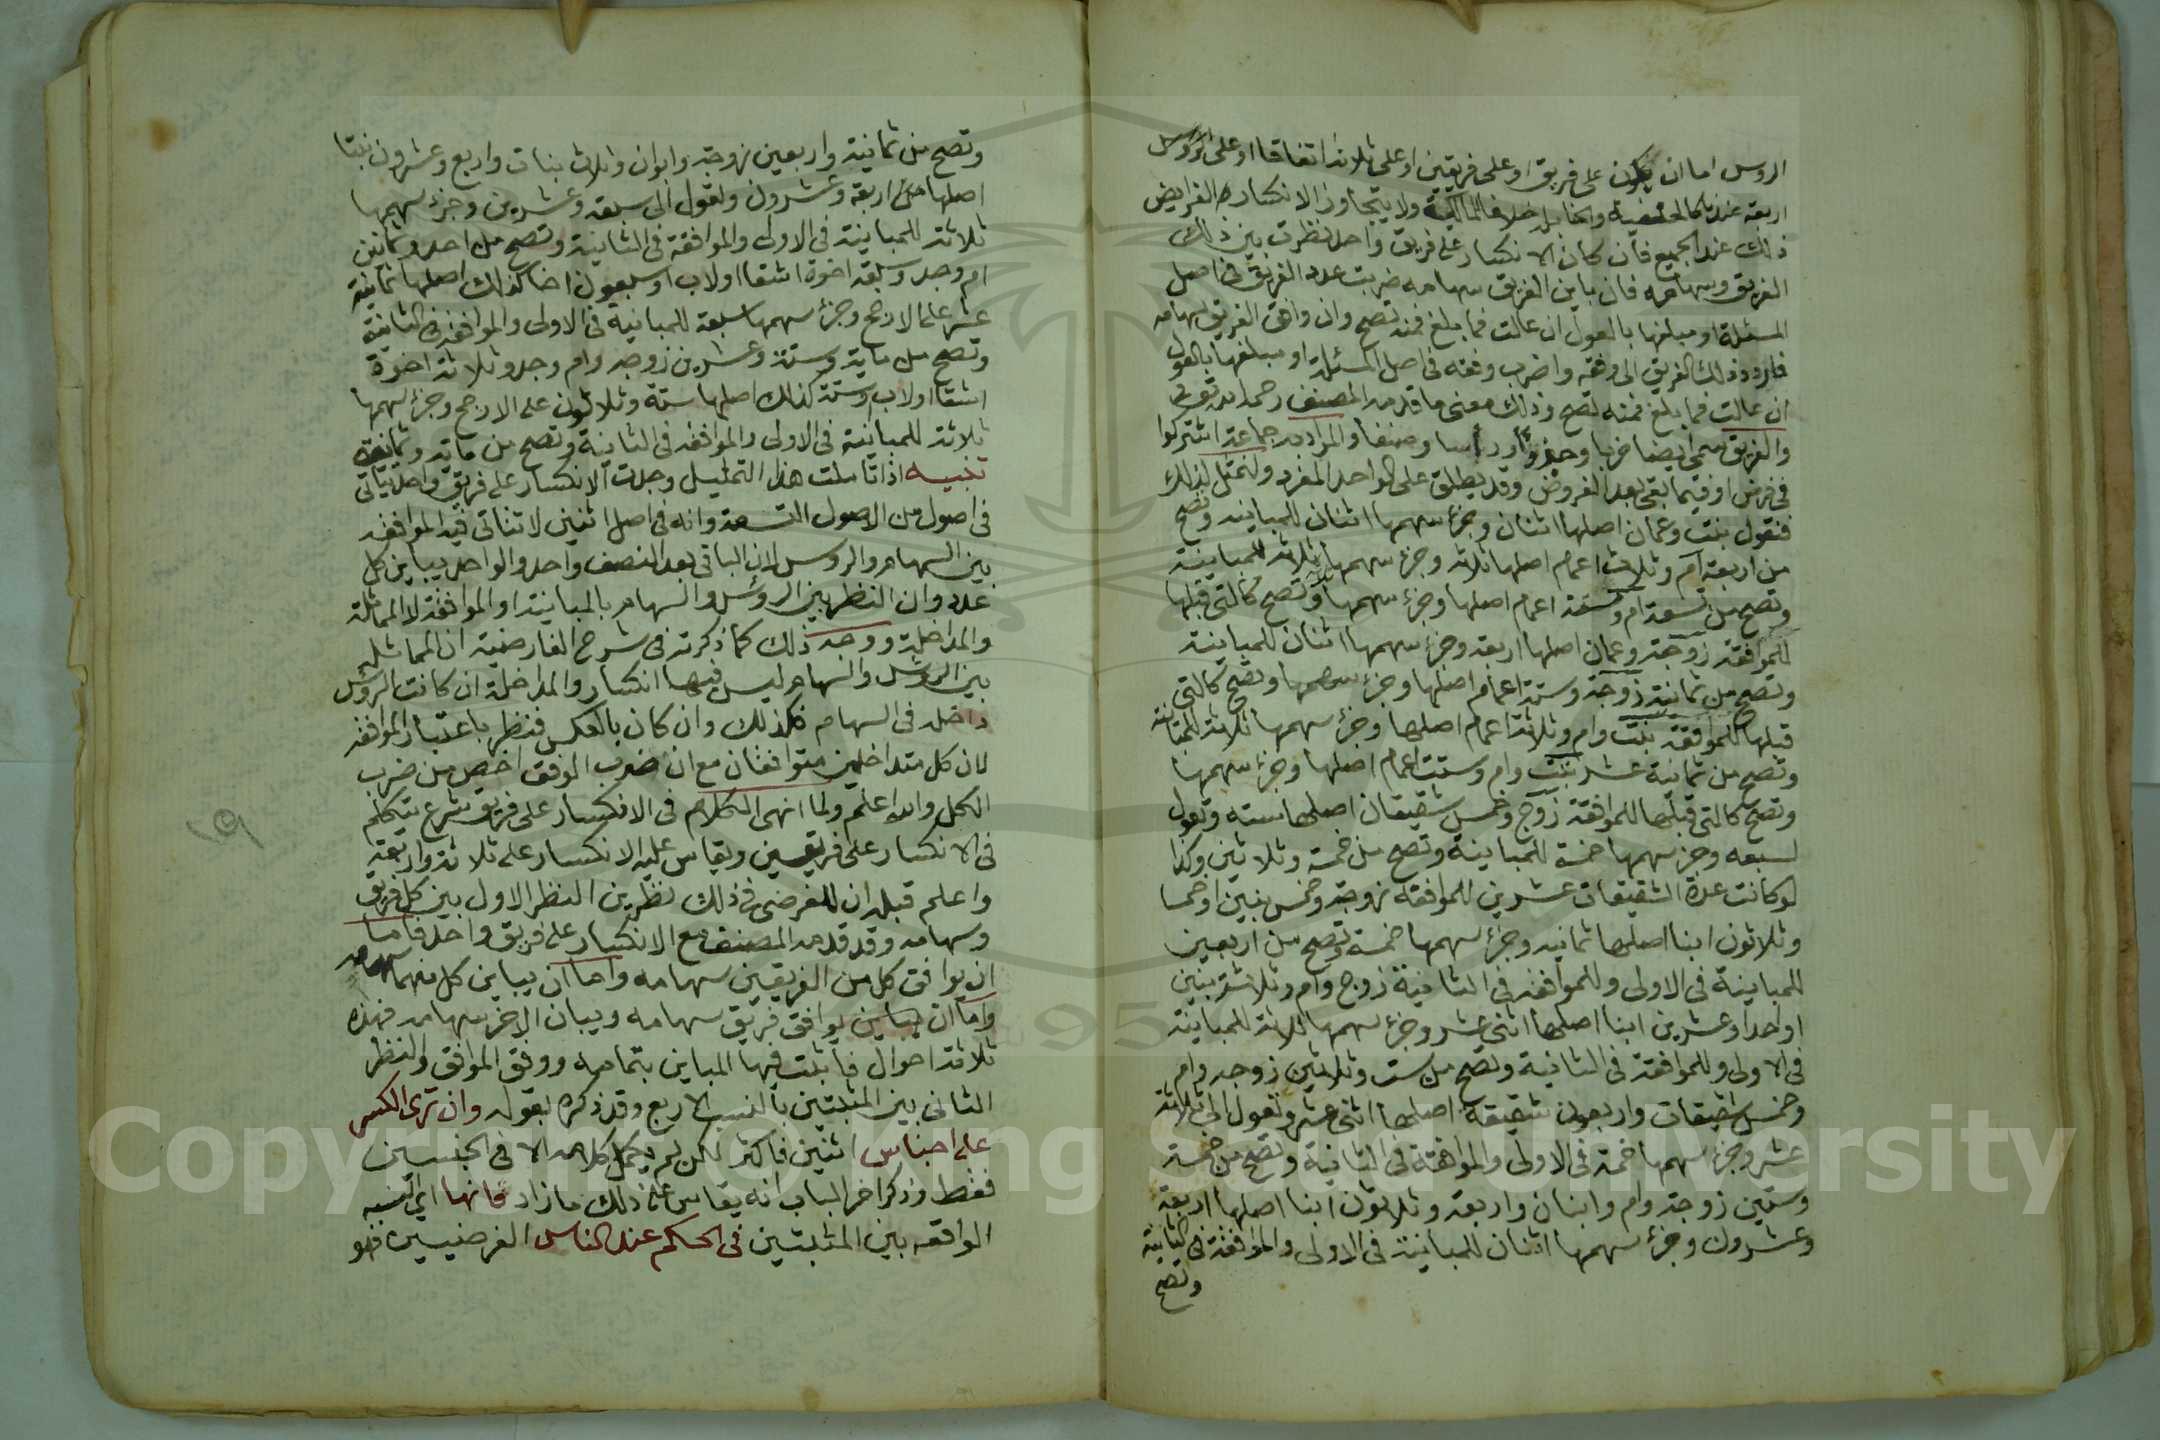 الروس اما ان يكون على فريق او على فريقين او على ثلاثة اتفاقا او على الروس
اربعة عندنا كالحنفية والحنابلة خلافا للمالكية ولا يتجاوز الانكسار في الفرايض
ذلك عند الجميع فان كان الانكسار على فريق واحد نظرت بين ذلك
الفريق وسهامه فان باين الفريق سهامه ضربت عدد الفريق في اصل
المسئلة او مبلغها بالعول ان عالت فما بلغ فمنه تصح وان وافق الفريق سهامه
فاردد ذلك الفريق الى وفقه واضرب وفقه في اصل المسئلة او مبلغها بالعول
ان عالت فما بلغ فمنه تصح وذلك معنى ما قدمه المصنف رحمه الله تعالى
والفريق سمي ايضا حزبا وحيزا وراسا وصنفا والمراد به جماعة اشتركوا
في فرض او فيما بقي بعد الفروض وقد يطلق على الواحد المفرد ولنمثل لذلك
فنقول بنت وعمان اصلها اثنان وجزء سهمها اثنان للمباينة وتصح
من اربعة ام وثلاث اعمام اصلها ثلاثة وجزء سهمها ثلاثة للمباينة
وتصح من تسعة ام وستة اعمام اصلها وجزء سهمها وتصح كالتي قبلها
للموافقة زوجة وعمان اصلها اربعة وجزء سهمها اثنان للمباينة
وتصح من ثمانية زوجة وستة اعمام اصلها وجزء سهمها وتصح كالتي
قبلها للموافقة بنت وام وثلاثة اعمام اصلها وجزء سهمها ثلاثة للمباينة
وتصح من ثمانية عشر بنت وام وستت اعمام اصلها وجزء سهمها
وتصح كالتي قبلها للموافقة زوج وخمس شقيقات اصلها سته وتعول
لسبعه وجز سهمها خمسة للمباينة وتصح من خمسة وثلاثين وكذا
لو كانت عدة الشقيقات عشرين للموافقة زوجة وخمس بنين او خمسا
وثلاثون ابنا اصلها ثمانيه وجزء سهمها خمسة وتصح من اربعين
للمباينة في الاولى وللموافقة في الثانية زوج وام وثلاثة بنين
او احدا وعشرين ابنا اصلها اثني عشر وجزء سهمها ثلاثة للمباينة
في الاولى وللموافقة في الثانية وتصح من ست وثلاثين زوجه وام
وخمس شقيقات واربعون شقيقة اصلها اثني عشر وتعول الى ثلاثة
عشر وجزء سهمها خمسة في الاولى والموافقة في الثانية وتصح من خمسة
وستين زوجة وام وابنان واربعة وثلاثون ابنا اصلها اربعة
وعشرون وجزء سهمها اثنان للمباينة في الاولى والموافقة في الثانية
وتصح
وتصح من ثمانية واربعين زوجة وابوان وثلاث بنات واربع وعشرون بنتا
اصلها من اربعة وعشرون وتعول الى سبعة وعشرين وجزء سهمها
ثلاثة للمباينة في الاولى والموافقة في الثانية وتصح من احد وثمانين
ام وجد وسبعة اخوة اشقا او لاب او سبعون اخا كذلك اصلها ثمانية
عشر على الارجح وجزء سهمها سبعة للمباينة في الاولى والموافقة في الثانية
وتصح من ماية وستة وعشرين زوجه وام وجد وثلاثة اخوة
اشقا او لاب او ستة كذلك اصلها ستة وثلاثون على الارجح وجزء سهمها
ثلاثة للمباينة في الاولى والموافقة في الثانية وتصح من ماية وثمانية
تنبيه اذا تاملت هذا التمثيل وجدت الانكسار على فريق واحد يتاتى
في اصول من الاصول التسعة وانه في اصل اثنين لا تتاتى فيه الموافقة
بين السهام والروس لان الباقي بعد النصف واحد والواحد يباين كل
عدد وان النظر بين الروس والسهام بالمباينة او الموافقة لا المماثلة
والمداخلة ووجه ذلك كما ذكرته في شرح الفارضية ان المماثلة
بين الروس والسهام ليس فيها انكسار والمداخلة ان كانت الروس
داخله في السهام فكذلك وان كان بالعكس فنظر باعتبار الموافقة
لان كل متداخلين متوافقان مع ان ضرب الوفق اخص من ضرب
الكل والله اعلم ولما انهى الكلام في الانكسار على فريق شرع يتكلم
في الانكسار على فريقين ويقاس عليه الانكسار على ثلاثة واربعة
واعلم قبله ان للفرضي في ذلك نظرين النظر الاول بين كل فريق
وسهامه وقد قدمه المصنف مع الانكسار على فريق واحد فاما
ان يوافق كل من الفريقين سهامه واما ان يباين كل منهما سهامه
واما ان يباين يوافق فريق سهامه ويباين الاخر سهامه فهذه
ثلاثة احوال فاثبت فيها المباين بتمامه ووفق الموافق والنظر
الثاني بين المثبتين بالنسب الاربع وقد ذكره بقوله وان ترى الكسر
على اجناس اثنين فاكثر لكن لم يكمل كلامه الا في الجنسين
فقط وذكر اخر الباب انه يقاس على ذلك ما زاد فانها اي النسبه
الواقعه بين المثبتين في الحكم عند الناس الفرضيين فهو
١٥
Copyright © King Saud University
1957